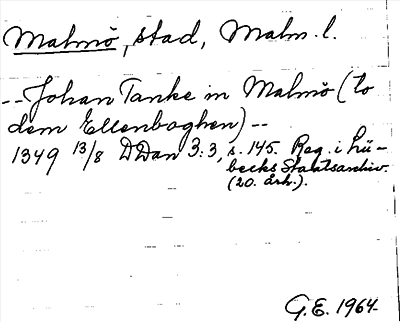 Malmö, stad, Malm. l.
-- Johan Tanke in Malmö (to
dem Ellenboghen) --
1349 13/8 DDan 3:3, s. 145. Reg. i Lü-
becks Staatsarchiv.
(20. årh.).
G.E. 1964.